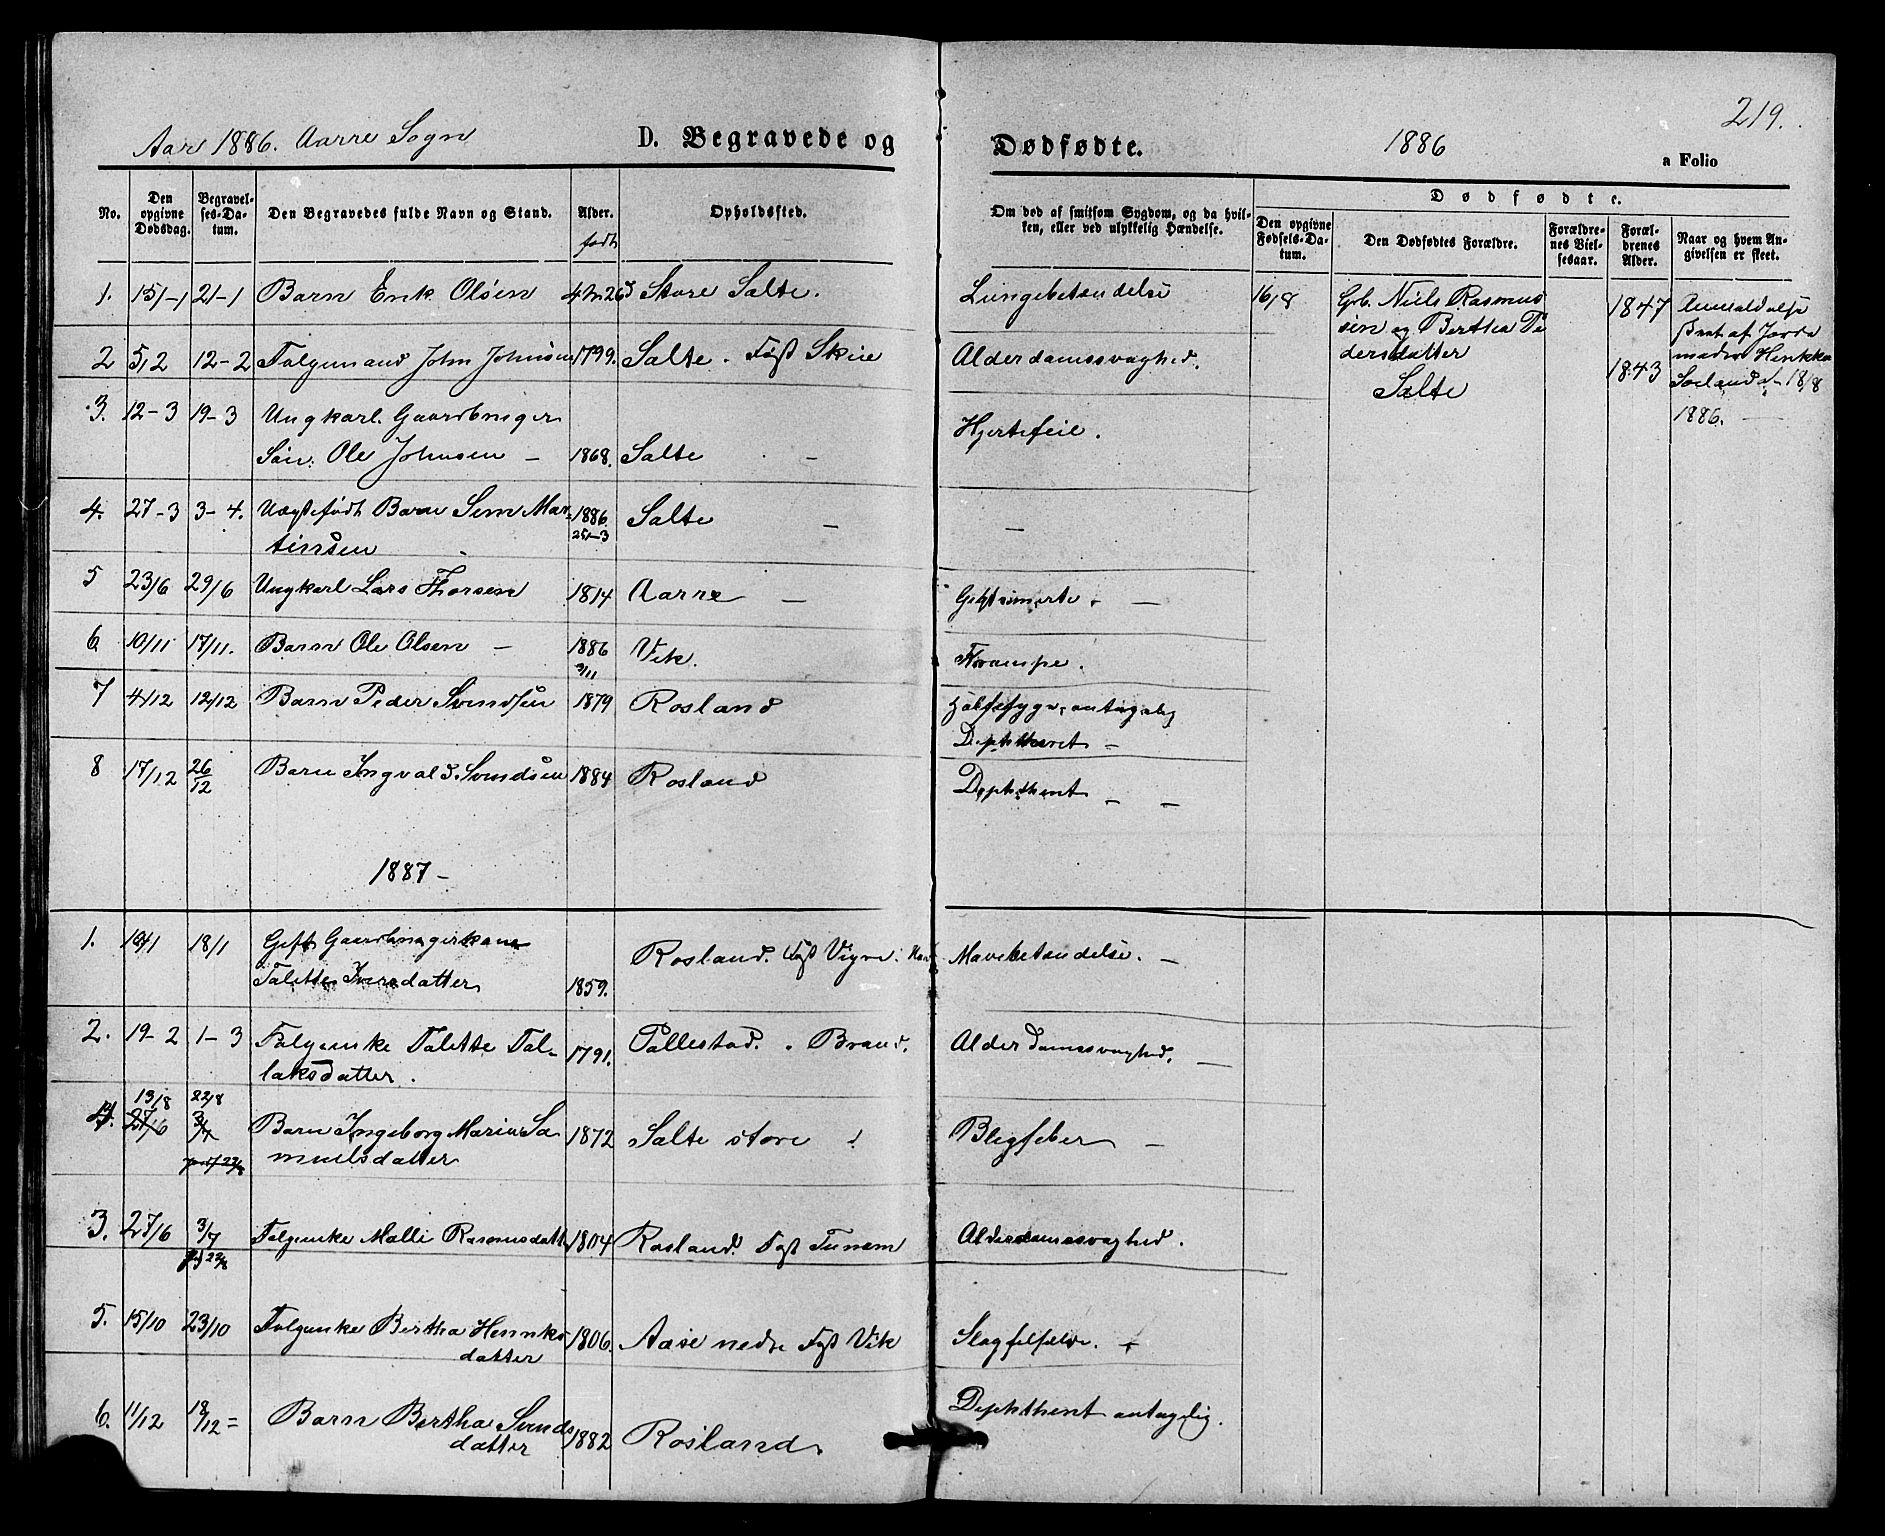 219.
Aar 1886. Aarre Sogn
D. Begravede og
Dødfødte.
1886
a Folio
No.
Den opgivne Dødsdag.
Begravelses-Datum.
Den Begravedes fulde Navn og Stand.
Alder.
født
Opholdssted.
Om død af smitsom Sygdom, og da hvilken, eller ved ulykkelig Hændelse.
Dødfødte.
Den opgivne Fødsels-Datum.
Den Dødfødtes Forældre.
Forældrenes Vielsesaar.
Forældrenes Alder.
Naar og hvem Angivelsen er skeet.
1. 15-1 21-1 Barn Erik Olsen 4M 26D Store Salte. Lungebetændelse
16/8 Grb. Niels Rasmus
sen og Bertha Pe
dersdatter
Salte
1847
1843
Anmeldelse
af Jorde
moder
18/8
1886.
2 5/2 12-2 Folgemand John Johnsen 1799. Salte. Født Skeie Alderdomssvaghed.
3. 12-3 19-3 Ungkarl. Gaardbruger
Søn. Ole Johnsen - 1868. Salte - Hjertefeil.
4. 27-3 3-4. Uægtefødt Barn Sem Mar-
tinsen 1886. 25-3 Salte - -
5 23/6 29/6 Ungkarl Lars Thorsen 1814 Aarre - Gigtsmerte. -
6 10/11 17/11. Barn Ole Olsen - 1886 3/11 Vik. Krampe.
7 4/12 12/12 Barn Peder Svendsen 1879 Rosland Halssyge, antagelig
Dephtherit -
8 17/12 26/12 Barn Ingvald Svendsen 1884 Rosland Dephtherit - -
1887 -
1. 18/1 Gift Gaardbrugerkone
Talette Iversdatter 1859. Rosland. Født Vigre. Mavebetændelse. -
2. 19-2 1-3 Folgenke Talette Tal-
laksdatter. 1791. Pollestad. . Braud. Alderdomssvaghed. -
13/8 22/8
4. 27/6 3/7 Barn Ingeborg Maria Sa
muelsdatter 1872 Salte store Blegfeber -
22/8
3. 27/6 3/7 Folgenke Malli Rasmusdatt 1804 Rosland. Født Tunem Alderdomssvaghed.
22/8
5. 15/10 23/10 Folgenke Bertha Henriks
datter 1806. Aase nedre Født Vik Slagtilfælde.
6. 11/12 18/12 = Barn Bertha Svends
datter 1882 Rosland. Dephtherit antagelig.